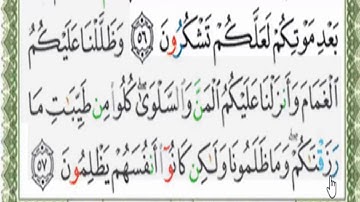 بَعْدِ مَوْتِكُمْ لَعَلَّكُمْ تَشْكُرُونَ ٥٦ وَظَلَّلْنَا عَلَيْكُمُ
الْغَمَامَ وَأَنزَلْنَا عَلَيْكُمُ الْمَنَّ وَالسَّلْوَىٰ ۖ كُلُوا مِن طَيِّبَٰتِ مَا
رَزَقْنَٰكُمْ ۖ وَمَا ظَلَمُونَا وَلَٰكِن كَانُوٓا أَنفُسَهُمْ يَظْلِمُونَ ٥٧